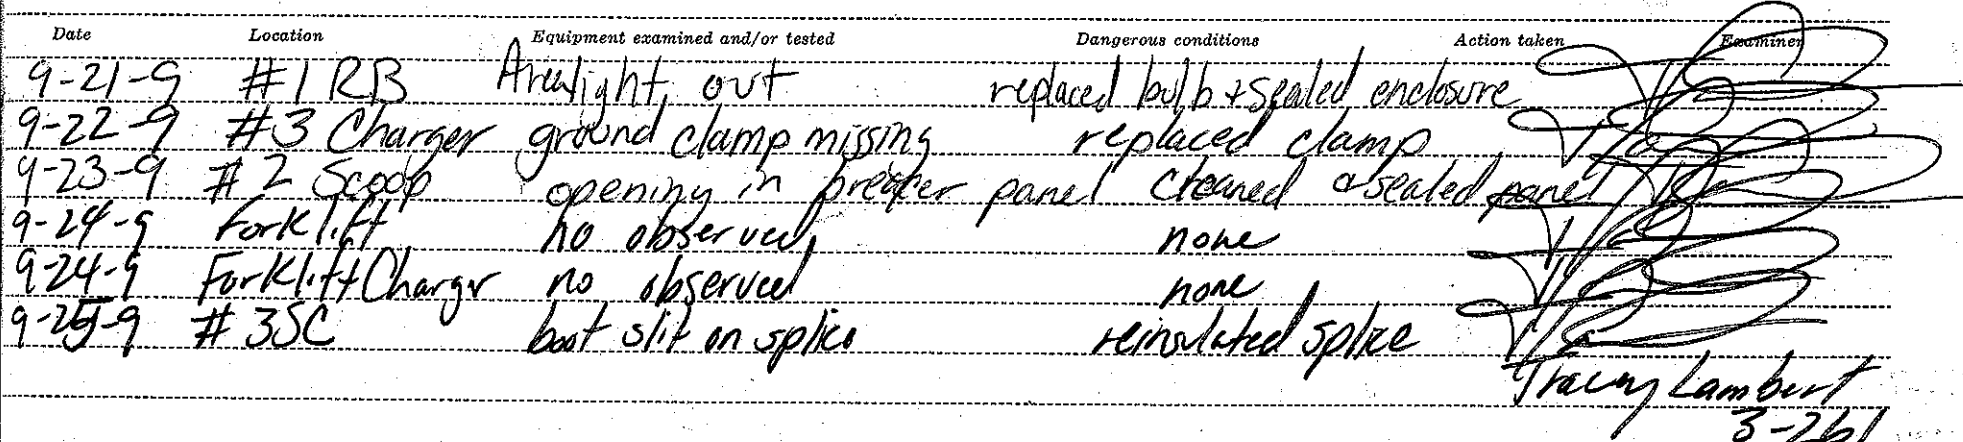 Date Location Equipment examined and/or tested Dangerous conditions Action taken Examiner
9-21-9 #1 RB Arealight out replaced bulb + sealed enclosure
9-22-9 #3 Charger ground clamp missing replaced clamp
9-23-9 #2 Scoop opening in breaker panel cleaned & sealed panel
9-24-9 Forklift no observed none
9-24-9 Forklift Charger no observed none
9-25-9 #3SC boot slit on splice reinsulated splice
Tracey Lambert
3-261